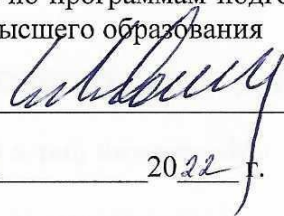 по программам подго
ысшего образования
2022 г.